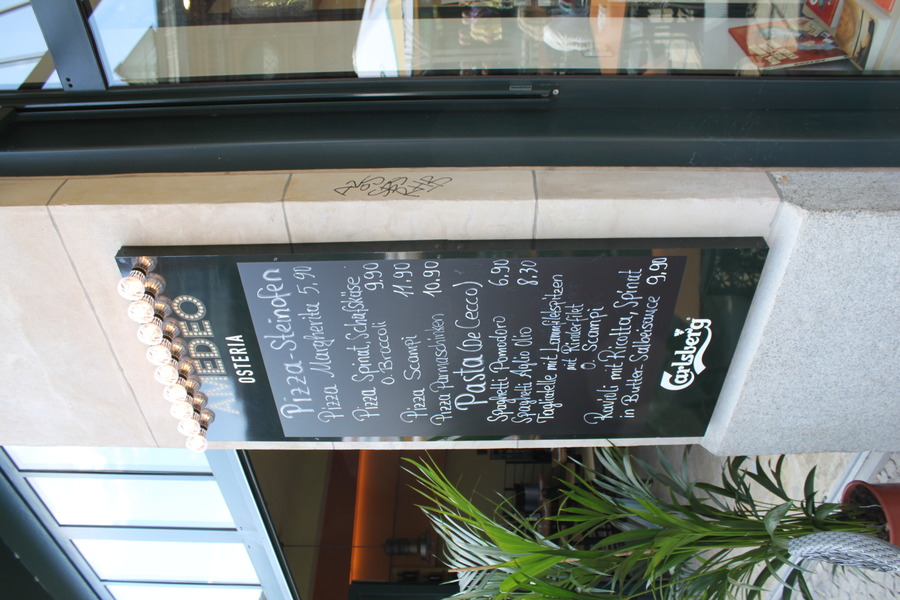 AMEDEO
OSTERIA
Pizza-Steinofen
Pizza Margherita 5,90
Pizza Spinat, Schafskäse
o. Broccoli 9,90
Pizza Scampi 11,90
Pizza Parmaschinken 10,90
Pasta (De Cecco)
Spaghetti Pomodoro 6,90
Spaghetti Aglio Olio 8,30
Tagliatelle mit Lammfiletspitzen
mit Rinderfilet
o. Scampi
Ravioli mit Ricotta, Spinat
in Butter-Salbeisauce 9,90
Carlsberg